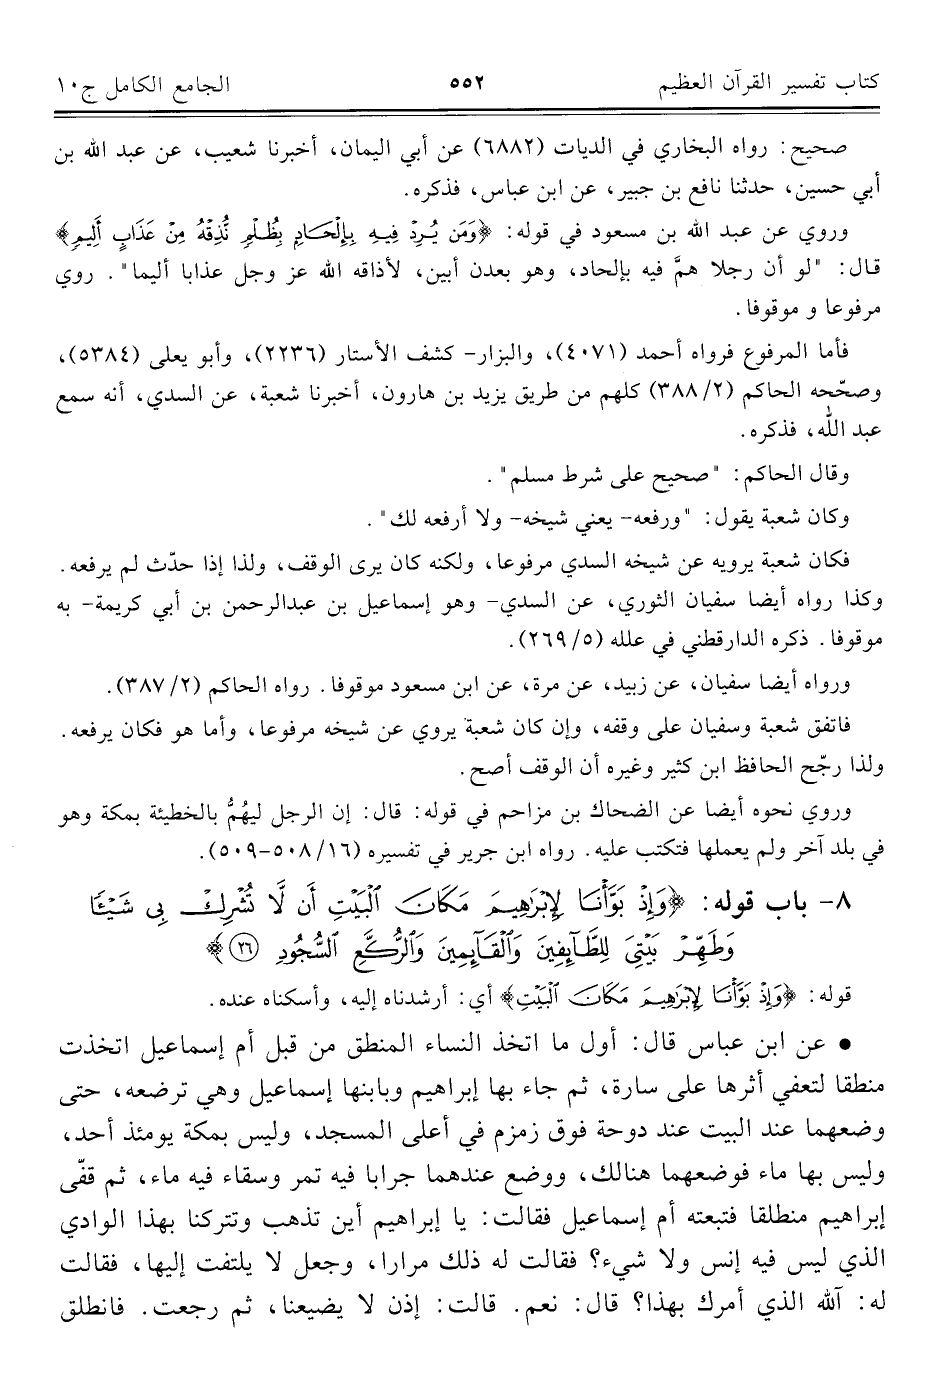 كتاب تفسير القرآن العظيم ٥٥٢ الجامع الكامل ج١٠
صحيح: رواه البخاري في الديات (٦٨٨٢) عن أبي اليمان، أخبرنا شعيب، عن عبد الله بن
أبي حسين، حدثنا نافع بن جبير، عن ابن عباس، فذكره.
وروي عن عبد الله بن مسعود في قوله: ﴿وَمَن يُرِدْ فِيهِ بِإِلْحَادٍ بِظُلْمٍ نُّذِقْهُ مِنْ عَذَابٍ أَلِيمٍ﴾
قال: "لو أن رجلا همَّ فيه بإلحاد، وهو بعدن أبين، لأذاقه الله عز وجل عذابا أليما". روي
مرفوعا و موقوفا.
فأما المرفوع فرواه أحمد (٤٠٧١)، والبزار- كشف الأستار (٢٢٣٦)، وأبو يعلى (٥٣٨٤)،
وصحّحه الحاكم (٣٨٨/٢) كلهم من طريق يزيد بن هارون، أخبرنا شعبة، عن السدي، أنه سمع
عبد الله، فذكره.
وقال الحاكم: "صحيح على شرط مسلم".
وكان شعبة يقول: "ورفعه- يعني شيخه- ولا أرفعه لك".
فكان شعبة يرويه عن شيخه السدي مرفوعا، ولكنه كان يرى الوقف، ولذا إذا حدّث لم يرفعه.
وكذا رواه أيضا سفيان الثوري، عن السدي- وهو إسماعيل بن عبدالرحمن بن أبي كريمة- به
موقوفا. ذكره الدارقطني في علله (٢٦٩/٥).
ورواه أيضا سفيان، عن زبيد، عن مرة، عن ابن مسعود موقوفا. رواه الحاكم (٣٨٧/٢).
فاتفق شعبة وسفيان على وقفه، وإن كان شعبة يروي عن شيخه مرفوعا، وأما هو فكان يرفعه.
ولذا رجّح الحافظ ابن كثير وغيره أن الوقف أصح.
وروي نحوه أيضا عن الضحاك بن مزاحم في قوله: قال: إن الرجل ليهُمُّ بالخطيئة بمكة وهو
في بلد آخر ولم يعملها فتكتب عليه. رواه ابن جرير في تفسيره (٥٠٨/١٦-٥٠٩).
٨- باب قوله: ﴿وَإِذْ بَوَّأْنَا لِإِبْرَٰهِيمَ مَكَانَ ٱلْبَيْتِ أَن لَّا تُشْرِكْ بِى شَيْـًٔا
وَطَهِّرْ بَيْتِىَ لِلطَّآئِفِينَ وَٱلْقَآئِمِينَ وَٱلرُّكَّعِ ٱلسُّجُودِ (٢٦)﴾
قوله: ﴿وَإِذْ بَوَّأْنَا لِإِبْرَٰهِيمَ مَكَانَ ٱلْبَيْتِ﴾ أي: أرشدناه إليه، وأسكناه عنده.
• عن ابن عباس قال: أول ما اتخذ النساء المنطق من قبل أم إسماعيل اتخذت
منطقا لتعفي أثرها على سارة، ثم جاء بها إبراهيم وبابنها إسماعيل وهي ترضعه، حتى
وضعهما عند البيت عند دوحة فوق زمزم في أعلى المسجد، وليس بمكة يومئذ أحد،
وليس بها ماء فوضعهما هنالك، ووضع عندهما جرابا فيه تمر وسقاء فيه ماء، ثم قفّى
إبراهيم منطلقا فتبعته أم إسماعيل فقالت: يا إبراهيم أين تذهب وتتركنا بهذا الوادي
الذي ليس فيه إنس ولا شيء؟ فقالت له ذلك مرارا، وجعل لا يلتفت إليها، فقالت
له: آلله الذي أمرك بهذا؟ قال: نعم. قالت: إذن لا يضيعنا، ثم رجعت. فانطلق